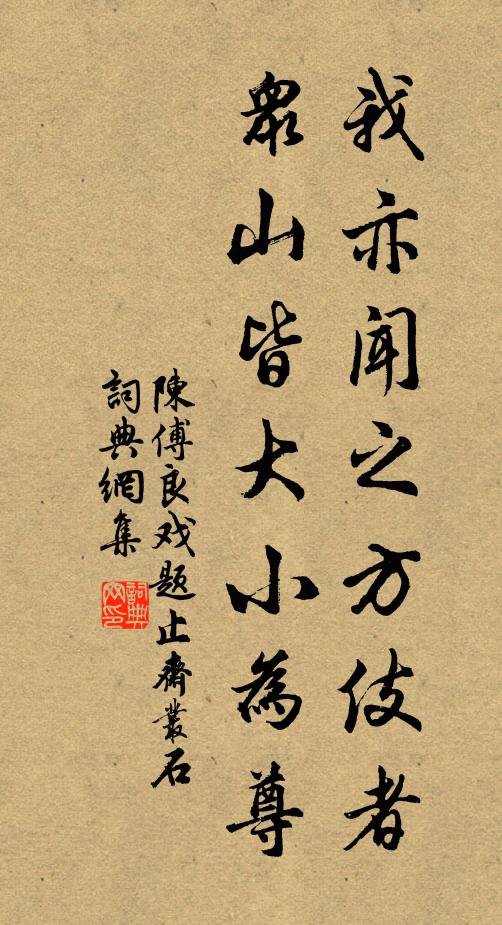 我亦聞之方伎者
眾山皆大小為尊
陳傅良戏题止齋叢石
詞典網集
詞典
网印